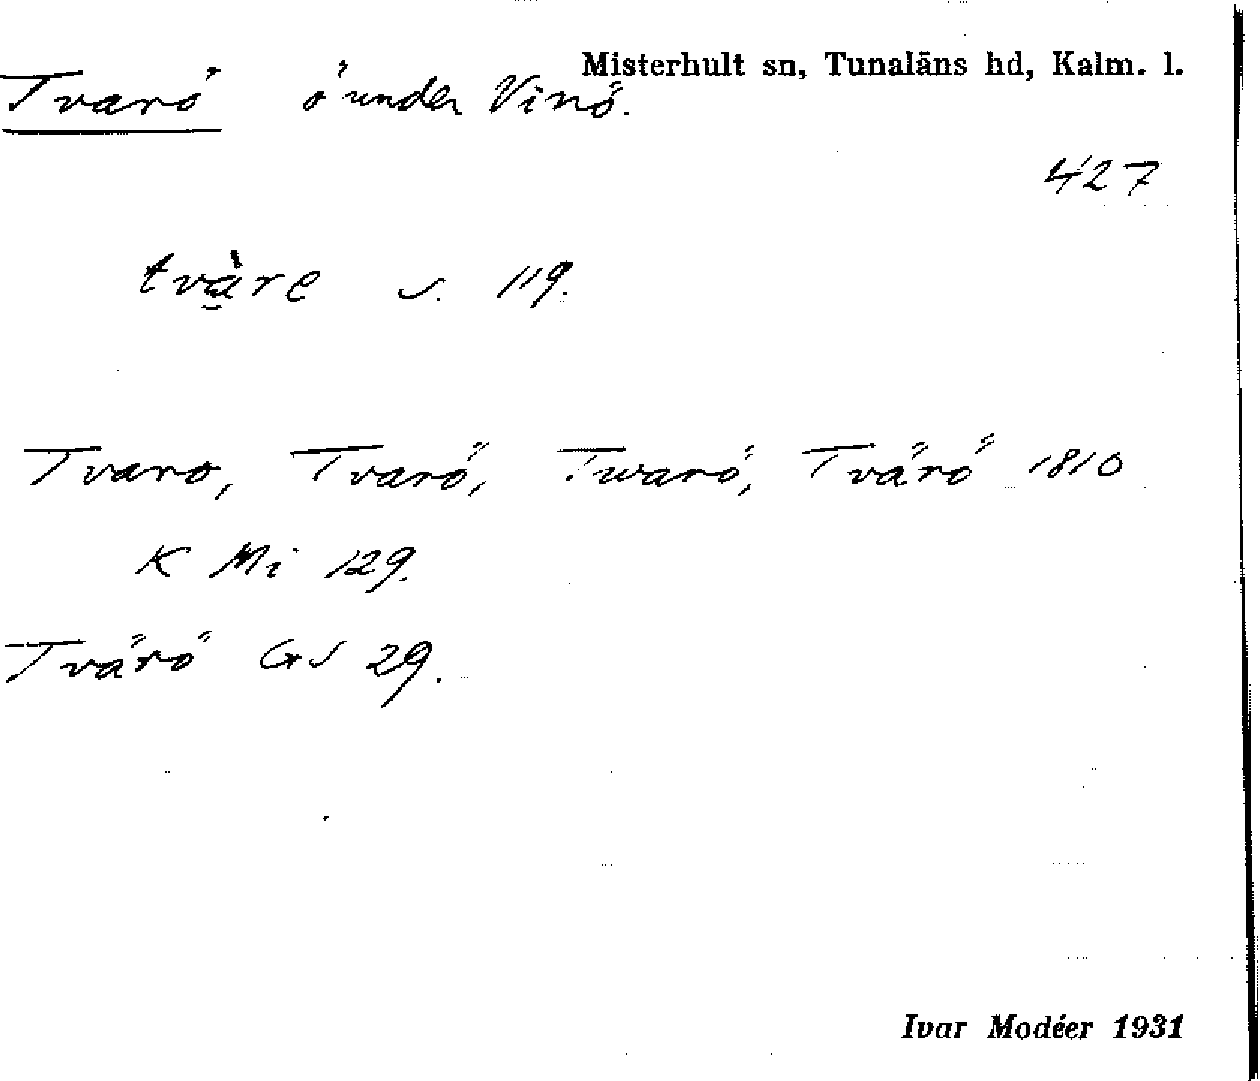 Misterhult sn, Tunaläns hd, Kalm. l.
Tvarö ö under Vinö.
427
tvàre s. 119.
Tvaro, Tvarö, Twarö, Tvärö 1810
K Mi 129.
Tvärö GS 29.
Ivar Modéer 1931